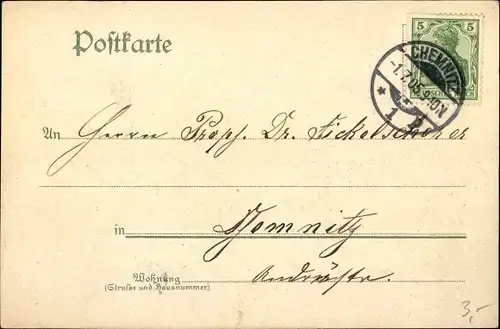 Postkarte
5
CHEMNITZ
-1.7.05.9-10N
* 1 b
An Herrn Proph. Dr. Fickelscherer
in Chemnitz
Wohnung Andréstr.
(Straße und Hausnummer)
3,-